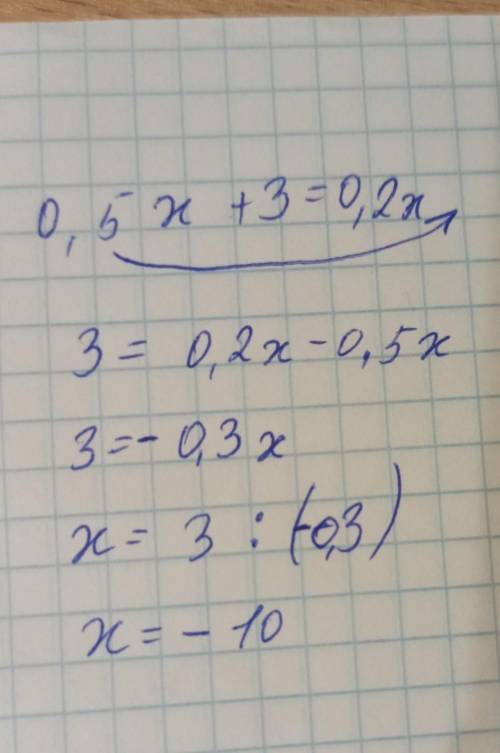 0,5x+3=0,2x
3=0,2x-0,5x
3=-0,3x
x=3:(-0,3)
x=-10